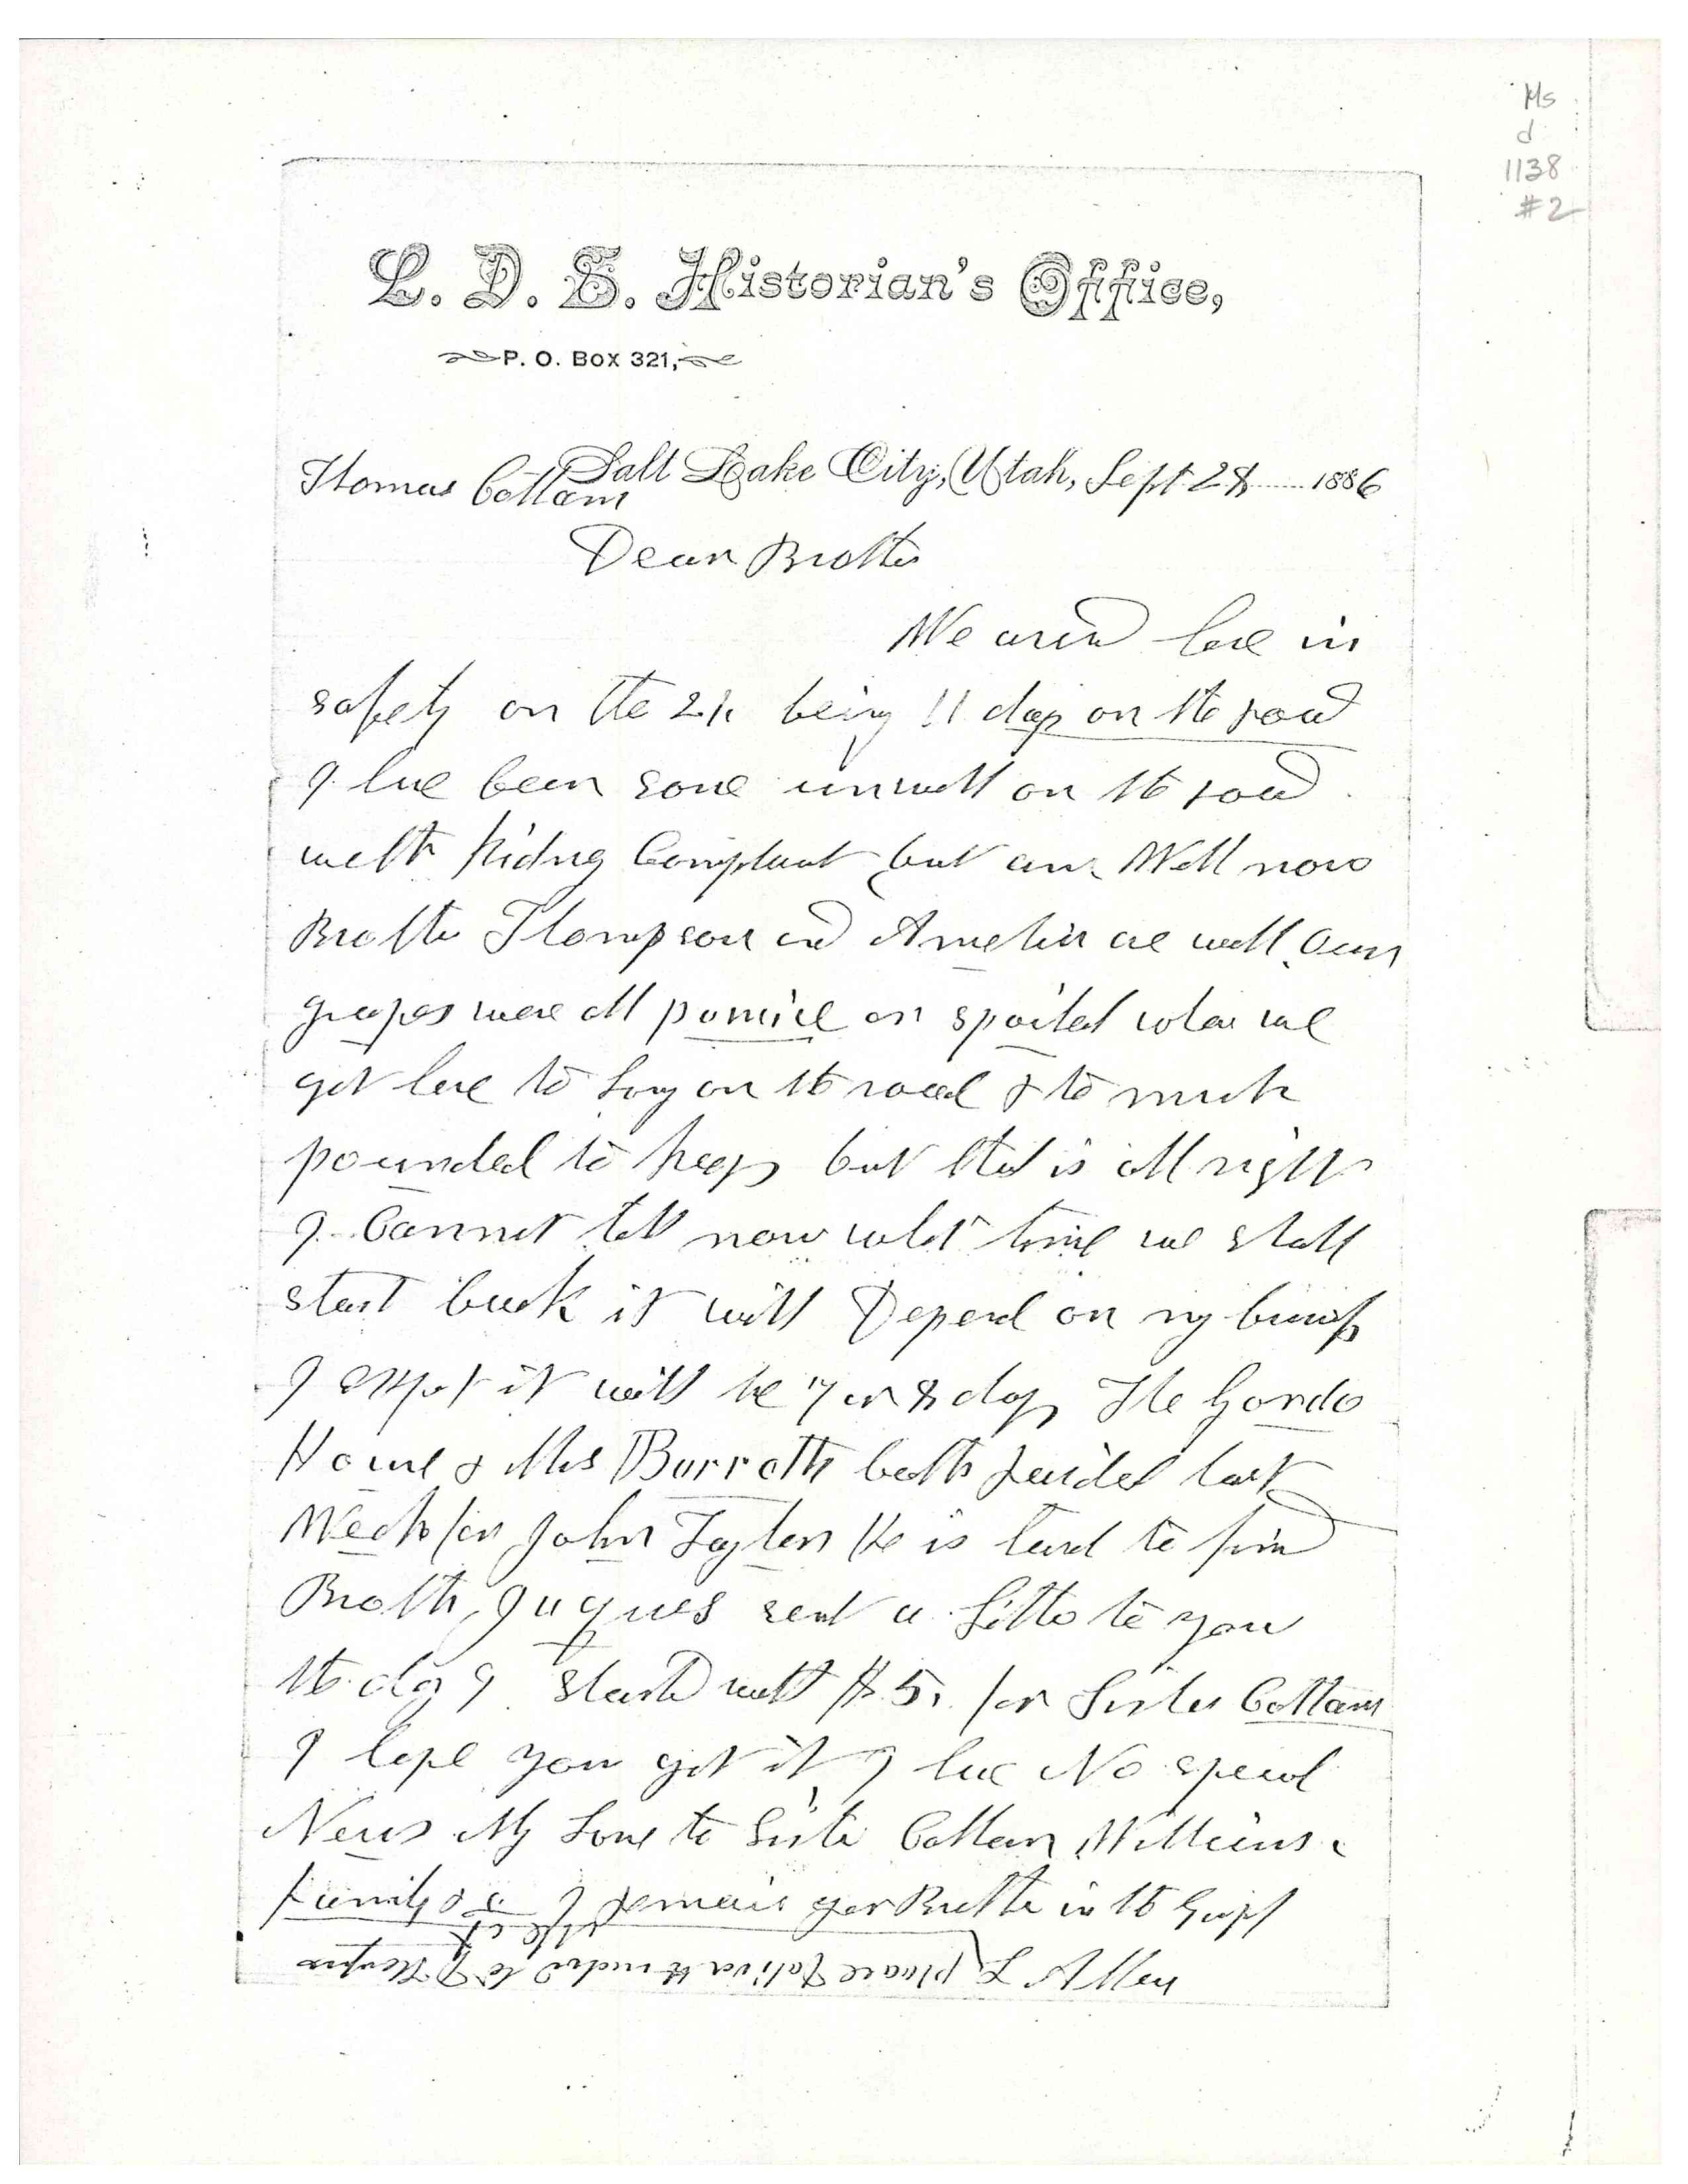 Ms
d
1138
#2
L. D. S. Historian's Office,
P. O. BOX 321,
Salt Lake City, Utah, Sept 28 1886
Thomas Cottam
Dear Brother
We arived here in
safety on the 24 being 11 days on the road
I have been some unwell on the road
with Kidney Complaint but am Well now
Brother Thompson and Amelia are well Our
grapes were all pomice or spoiled when we
got here to long on the road & to much
pounded to keep but that is all right
I Cannot tell now what time we shall
start back it will Depend on my buisness
I expet it will be 7 or 8 days The Gordo
House & Mrs Barratts both raided last
Week for John Taylor He is hard to find
Brother Jaques sent a letter to you
the day I started with $5. for Sister Cottam
I hope you got it I have No special
News My Love to Sister Cottam
family &c I remain your Brother in the Gospel
L Allen
please deliver the to